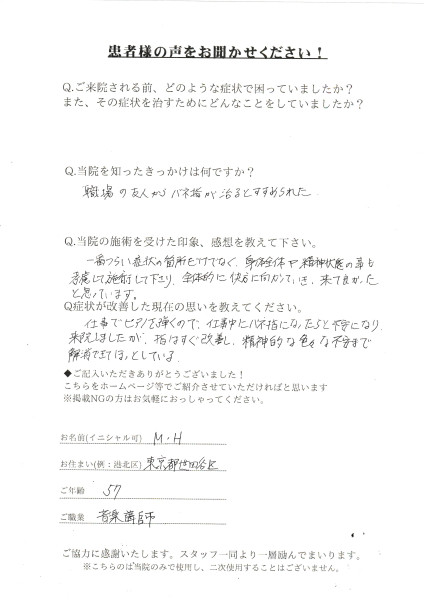 患者様の声をお聞かせください！
Q.ご来院される前、どのような症状で困っていましたか？
また、その症状を治すためにどんなことをしていましたか？
Q.当院を知ったきっかけは何ですか？
職場の友人からバネ指が治るとすすめられた
Q.当院の施術を受けた印象、感想を教えて下さい。
一番つらい症状の箇所だけでなく、身体全体や精神状態の事も
考慮して施術して下さり、全体的に快方に向かっていき、来て良かった
と思っています。
Q症状が改善した現在の思いを教えてください。
仕事でピアノを弾くので、仕事中にバネ指になったらと不安になり
来院しましたが、指はすぐ改善し、精神的な色々な不安まで
解消できてほっとしている。
◆ご記入いただきありがとうございました！
こちらをホームページ等でご紹介させていただければと思います
※掲載NGの方はお気軽におっしゃってください。
お名前(イニシャル可) M・H
お住まい(例：港北区) 東京都世田谷区
ご年齢 57
ご職業 音楽講師
ご協力に感謝いたします。スタッフ一同より一層励んでまいります。
※こちらのご感想は当院のみで使用し、二次使用することはございません。